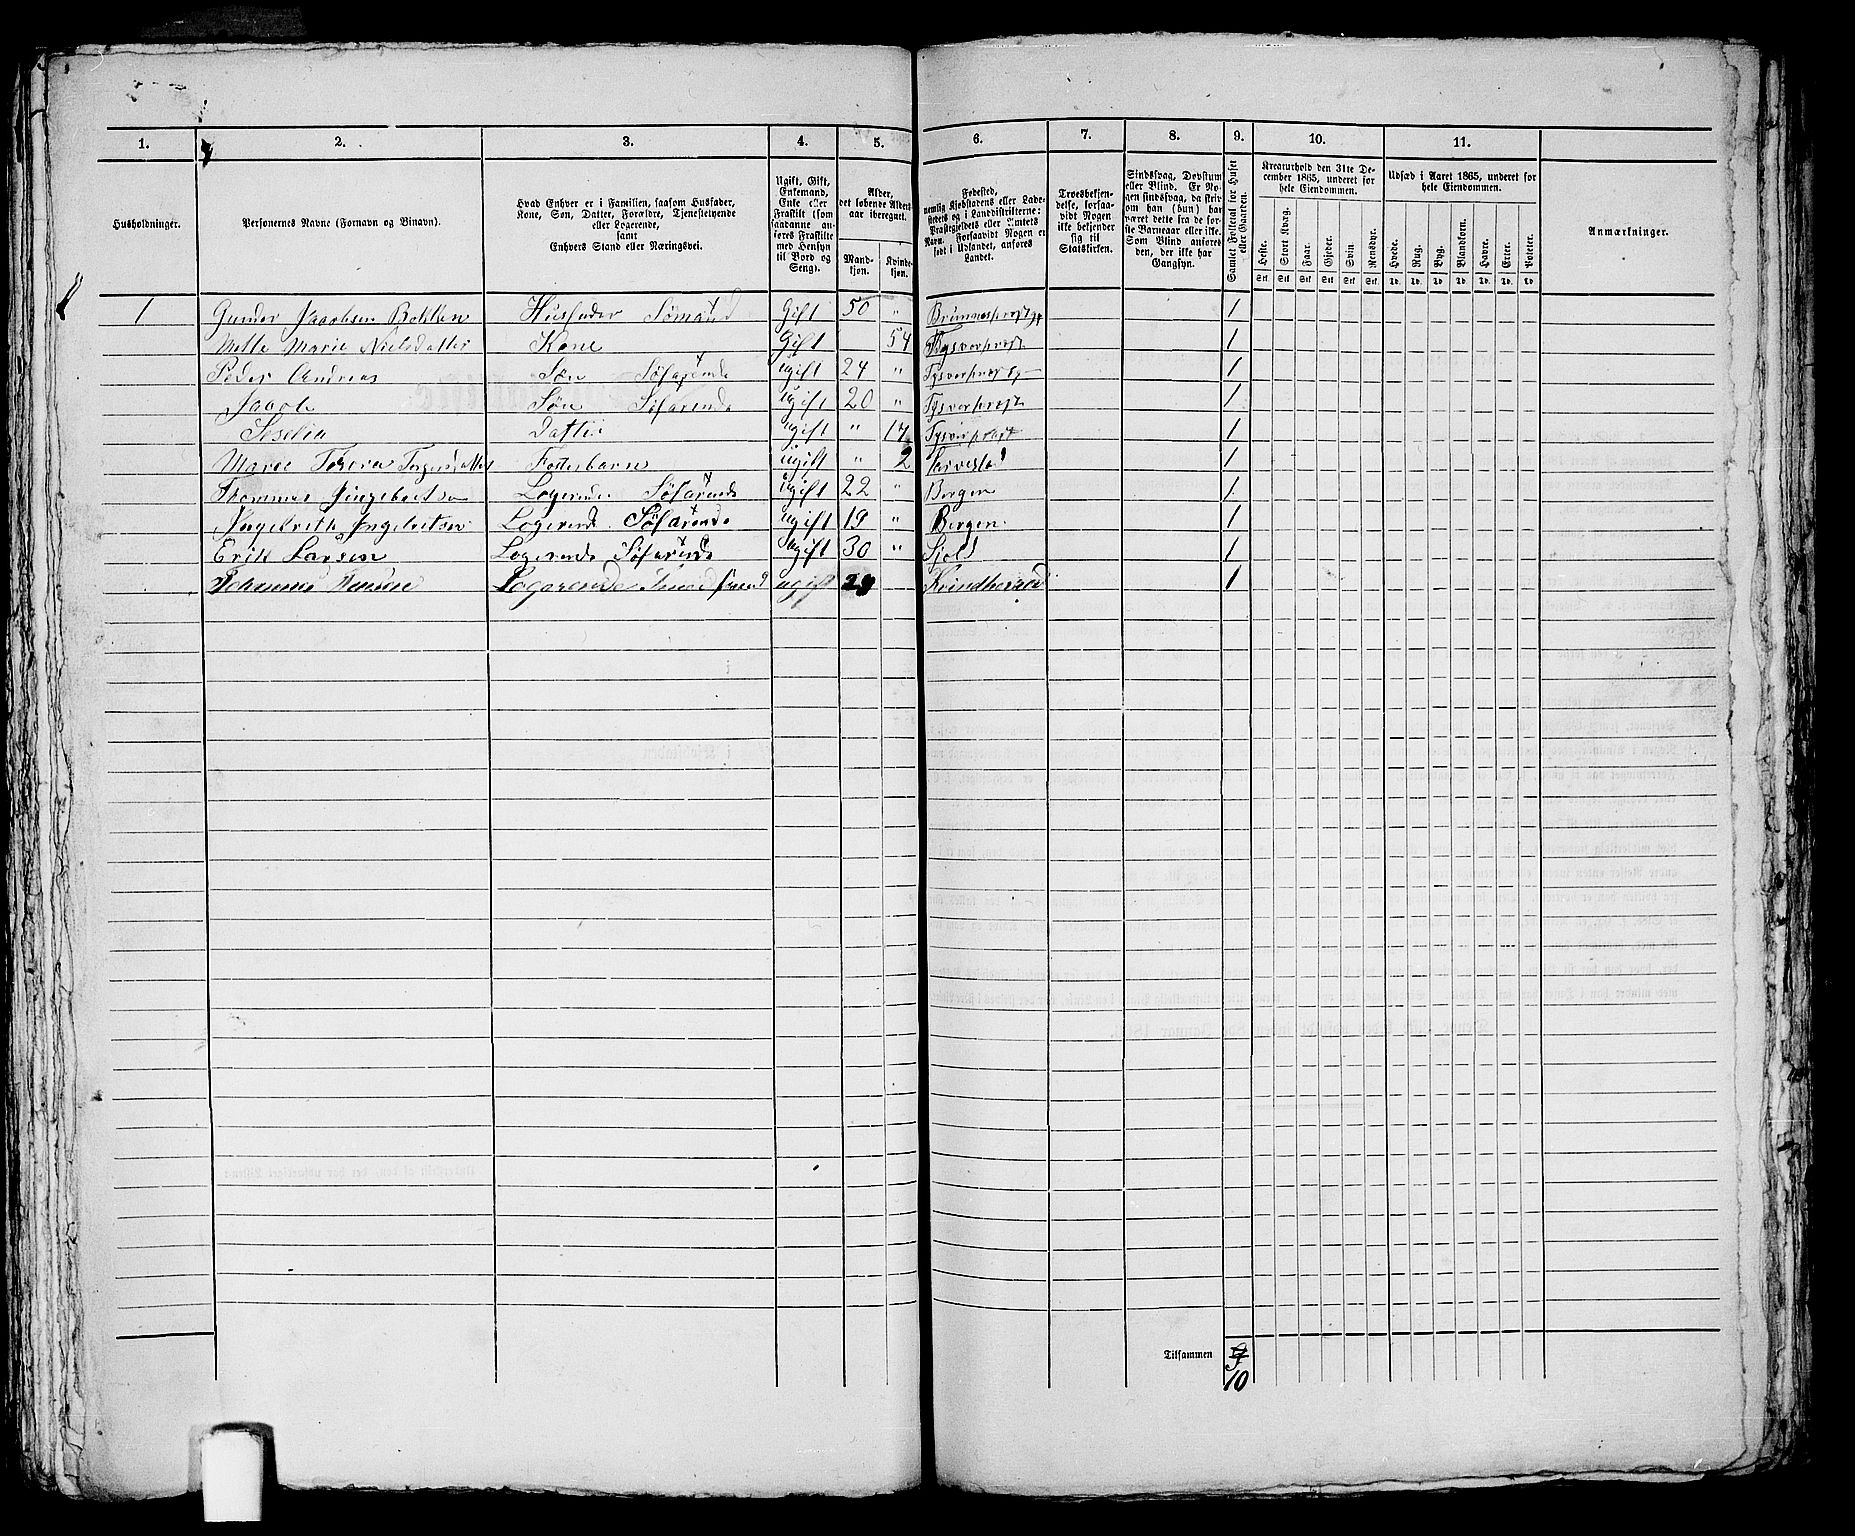 1. 2. 3. 4. 5. 6. 7. 8. 9. 10. 11.
Husholdninger.
Personernes Navne (Fornavn og Binavn).
Hvad Enhver er i Familien, saasom Husfader,
Kone, Søn, Datter, Forældre, Tjenestetyende
eller Logerende,
samt
Enhvers Stand eller Næringsvei.
Ugift, Gift,
Enkemand,
Enke eller
Fraskilt (som
saadanne an-
føres Fraskilte
med Hensyn
til Bord og
Seng).
Alder,
det løbende Alders-
aar iberegnet.
Mand-
kjøn.
Kvinde-
kjøn.
Fødested,
nemlig Kjøbstadens eller Lade-
stedets og i Landdistrikterne:
Præstegjeldets eller Amtets
Navn. Forsaavidt Nogen er
født i Udlandet, anføres
Landet.
Troesbekjen-
delse, forsaa-
vidt Nogen
ikke bekjender
sig til
Statskirken.
Sindssvag, Døvstum
eller Blind. Er No-
gen sindssvag, da skriv
om han (hun) har
været dette fra de før-
ste Barneaar eller ikke.
Som Blind anføres
den, der ikke har
Gangsyn.
Samlet Folketal for Huset
eller Gaarden.
Kreaturhold den 31te De-
cember 1865, underet for
hele Eiendommen.
Heste. Stort Kvæg. Faar. Gjeder. Svin. Rensdyr.
Stk Stk Stk Stk Stk Stk
Udsæd i Aaret 1865, underet for
hele Eiendommen.
Hvede. Rug. Byg. Blandkorn. Havre. Erter. Poteter.
Td. Td. Td. Td. Td. Td. Td
Anmærkninger.
1 Gunder Jacobsen Bokken Husfader Sømand Gift 50 " 1
Mette Marie Nielsdatter Kone Gift 54 Tysverprest 1
Peder Andreas Søn Søfarende ugift 24 " 1
Jacob Søn Søfarende ugift 20 " Tysverprest 1
Seselia Datter ugift " 17 Tysverprest 1
Marie Fosterbarn ugift " 2 1
Thommas Ingebretsen Logerende Søfarende ugift 22 " Bergen 1
Ingebreth Ingebretsen Logerende Søfarende ugift 19 " Bergen 1
Erik Larsen Logerende Søfarende ugift 30 " Sjold 1
Johannes Logerende ugift Kvindherred 1
Tilsammen 9
10